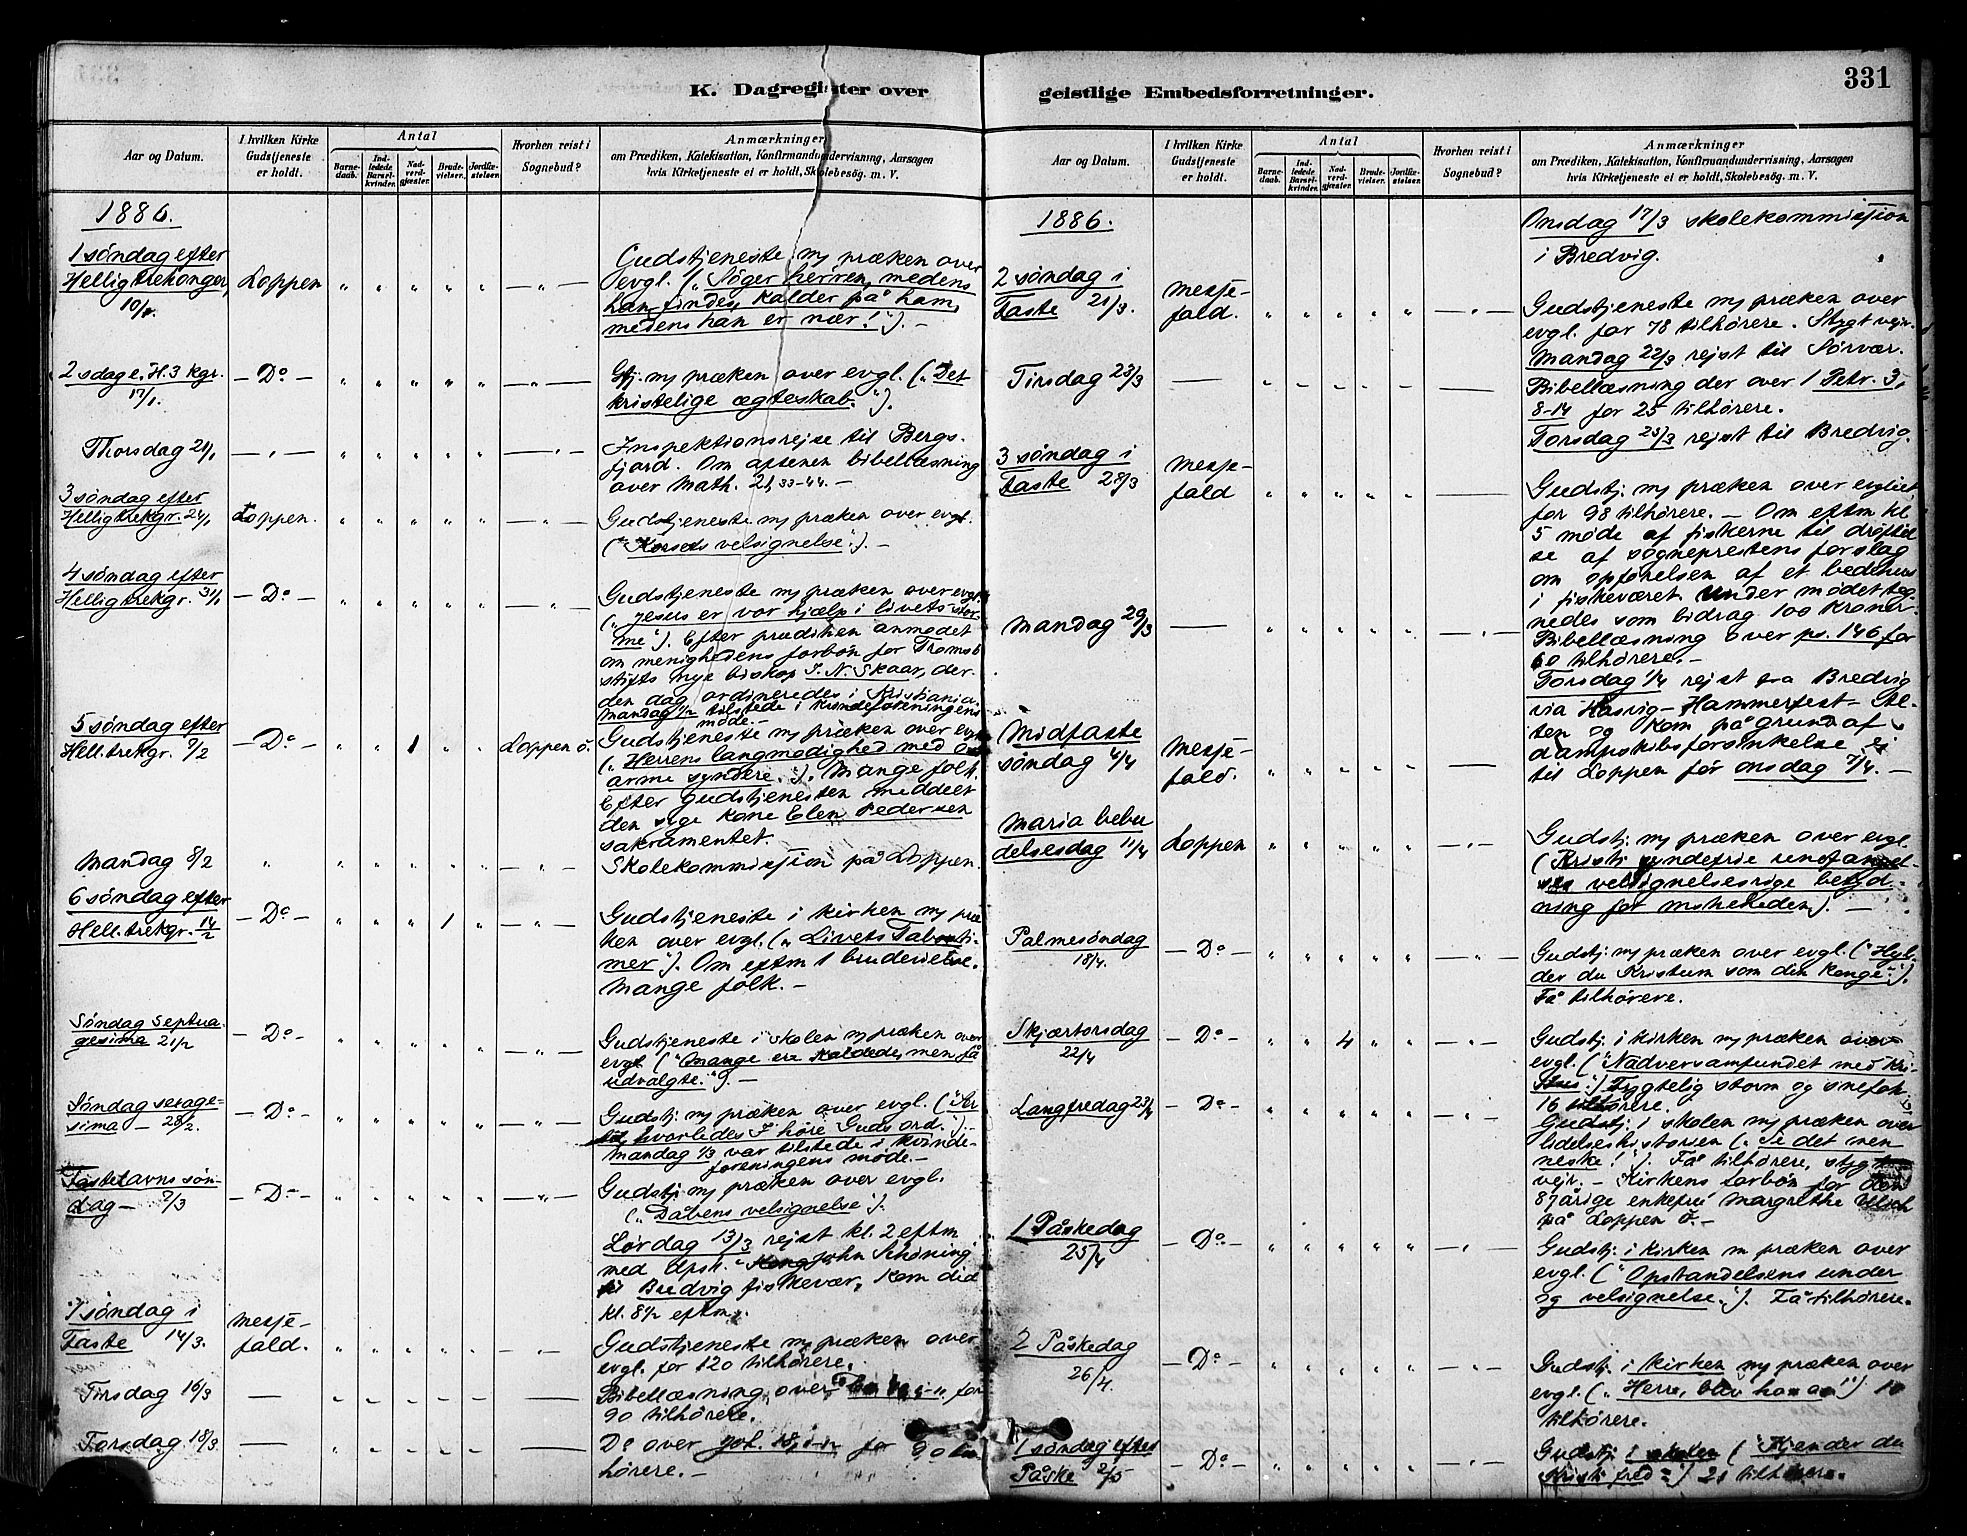 K. Dagregister over
geistlige Embedsforretninger.
331
Aar og Datum.
I hvilken Kirke Gudstjeneste er holdt.
Antal
Barne-daab.
Ind-ledede Barsel-kvinder.
Nad-verd-gjæster.
Brude-vielser.
Jordfæ-stelser.
Hvorhen reist i Sognebud?
Anmærkninger
om Prædiken, Katekisation, Konfirmandundervisning, Aarsagen
hvis Kirketjeneste ei er holdt, Skolebesøg. m. V.
1886.
1 søndag efter
Hellig trekonger,
10/1.
Loppen
Gudstjeneste m/ præken over
evgl. („Søger herren, medens
han findes, kalder på ham,
medens han er nær!"). –
2 sdag e. H. 3 kgr.
17/1.
– Do –
Gtj. m/ præken over evgl. („Det
kristelige ægteskab.").
Thorsdag 21/1
Inspektionsrejse til Bergs-
fjord. Om aftenen bibellæsning
over Math. 21, 33-44. –
3 søndag efter
Hellig trekgr. 24/1
Loppen.
Gudstjeneste m/ præken over evgl.
("Korsets velsignelse".). –
4 søndag efter
Hellig trekgr. 31/1
– Do –
Gudstjeneste m/ præken over evgl.
(„Jesus er vor hjælp i livets stor-
me"). Efter prædiken anmodet
om menighedens forbøn for Tromsø
stifts nye biskop J. N. Skaar, der
den dag ordineredes i Kristiania.
Mandag 1/2 tilstede i kvindeforeningens
møde. –
5 søndag efter
Hell. trekgr. 7/2
– Do –
1
Loppen ø.
Gudstjeneste m/ præken over evgl.
(„Herrens langmodighed med os
arme syndere."). Mange folk.
Efter gudstjenesten meddelt
den syge kone Elen Pedersen
sakramentet.
Mandag 8/2
Skolekommission på Loppen.
6 søndag efter
Hell. trekgr. 14/2
– Do –
1
Gudstjeneste i kirken m/ præ-
ken over evgl. („Livets Taborti-
mer"). Om eftm 1 brudevielse.
Mange folk. –
Søndag septua-
gesima 21/2
– Do –
Gudstjeneste i skolen m/ præken over
evgl. ("Mange ere kaldede, men få
udvalgte."). –
Søndag sexage-
sima – 28/2.
– Do –
Gudstj. m/ præken over evgl. ("Ser
til, hvorledes I høre Guds ord.").
Mandag 1/3 var tilstede i kvinde-
foreningens møde. –
Fastelavns søn-
dag – 7/3
– Do –
Gudstj. m/ præken over evgl.
(„Dåbens velsignelse").
Lørdag 13/3 rejst kl. 2 eftm
med Dpsk. John Schøning
til Bredvig fiskevær, kom did
kl. 8½ eftm.
1 søndag i
Faste 14/3.
Messe-
fald.
Gudstjeneste m/ præken over
evgl. for 120 tilhørere.
Tirsdag 16/3
Bibellæsning over for
90 tilhørere.
Torsdag 18/3
Do over for 90 til-
hørere. –
Aar og Datum.
I hvilken Kirke Gudstjeneste er holdt.
Antal
Barne-daab.
Ind-ledede Barsel-kvinder.
Nad-verd-gjæster.
Brude-vielser.
Jordfæ-stelser.
Hvorhen reist i Sognebud?
Anmærkninger
om Prædiken, Katekisation, Konfirmandundervisning, Aarsagen
hvis Kirketjeneste ei er holdt, Skolebesøg. m. V.
1886.
Onsdag 17/3 skolekommission
i Bredvig.
2 søndag i
Faste 21/3.
Messe-
fald.
Gudstjeneste m/ præken over
evgl. for 78 tilhørere. Stygt vejr.
Mandag 22/3 rejst til Sørvær.
Tirsdag 23/3
Bibellæsning der over 1 Petr. 3,
8-14 for 25 tilhørere.
Torsdag 25/3 rejst til Bredvig.
3 søndag i
Faste 28/3
Messe-
fald
Gudstj. m/ præken over evgliet
for 98 tilhørere. – Om eftm kl
5 møde af fiskerne til drøftel
se af sogneprestens forslag
om opførelsen af et bedehus
i fiskeværet. Under mødet teg-
nedes som bidrag 100 kroner.
Mandag 29/3
Bibellæsning over ps. 146 for
60 tilhørere. –
Torsdag 1/4 rejst fra Bredvig
via Hasvig – Hammerfest – Al-
ten og kom på grund af
dampskibsforsinkelse ei
til Loppen før onsdag 7/4. –
Midfaste
søndag 4/4
Messe-
fald.
Maria bebu
delsesdag 11/4
Loppen
Gudstj. m/ præken over evgl.
(Kristi syndefrie undfangel-
ses velsignelsesrige betyd-
ning for mskeheden). –
Palmesøndag
18/4.
– Do –
Gudstj. m/ præken over evgl. ("Hyl-
der du Kristum som din konge".).
Få tilhørere.
Skjærtorsdag
22/4
– Do –
4
Gudstj. i kirken m/ præken over
evgl. ("Nadversamfundet med Kri-
stus".) Frygtelig storm og snefok
16 tilhørere.
Langfredag 23/4
– Do –
Gudstj. i skolen m/ præken over
lidelseshistorien („Se det men
neske!"). Få tilhørere, stygt
vejr. – Kirkens forbøn for den
87 årige enkefru Margrethe
på Loppen ø. –
1 Påskedag
25/4
– Do –
Gudstj. i kirken m præken over
evgl. ("Opstandelsens under
og velsignelse."). Få tilhørere.
2 Påskedag
26/4.
– Do –
Gudstj. i kirken m/ præken over
evgl. („Herre, bliv hos os") 10
tilhørere.
1 søndag efter
Påske 2/5
– Do –
Gudstj. i skolen ("Kjender du
Kristi fred".) 21 tilhørere.